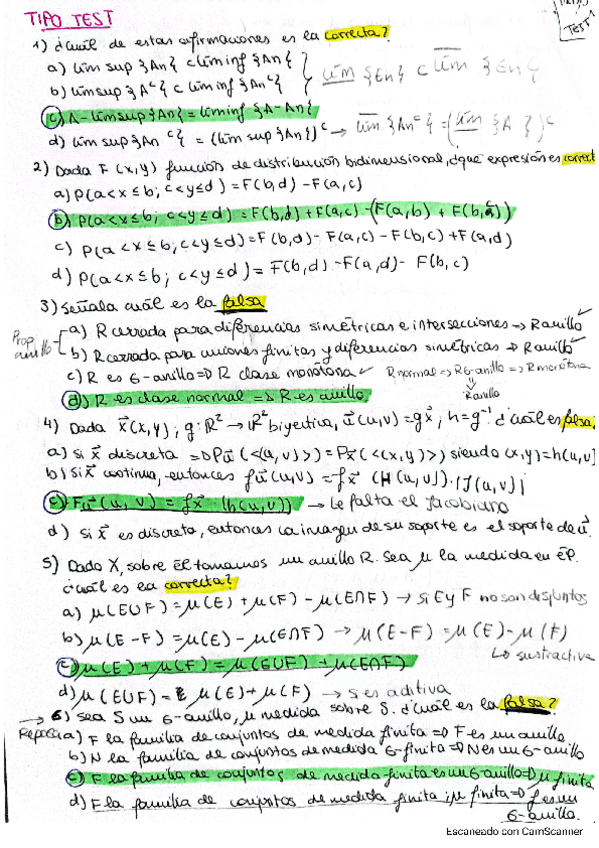 TIPO TEST
TEST
1) ¿Cuál de estas afirmaciones es la correcta?
a) lím sup {An} ⊂ lím inf {An}
b) lím sup {Aᶜ} ⊂ lím inf {Anᶜ}
lím {En} ⊂ lím {En}
c) A - lím sup {An} = lím inf {A - An}
d) lím sup {Anᶜ} = (lím sup {An})ᶜ → lím {Anᶜ} = (lím {A})ᶜ
2) Dada F(x,y) función de distribución bidimensional, ¿qué expresión es correct
a) P(a<x≤b; c<y≤d) = F(b,d) - F(a,c)
b) P(a<x≤b; c<y≤d) = F(b,d) + F(a,c) - (F(a,b) + F(b,a))
c) P(a<x≤b; c<y≤d) = F(b,d) - F(a,c) - F(b,c) + F(a,d)
d) P(a<x≤b; c<y≤d) = F(b,d) - F(a,d) - F(b,c)
3) Señala cuál es la falsa
Prop. anillo
a) R cerrada para diferencias simétricas e intersecciones → R anillo ✓
b) R cerrado para uniones finitas y diferencias simétricas → R anillo ✓
c) R es σ-anillo ⇒ R clase monótona ✓ R normal ⇒ R σ-anillo ⇒ R monótona
⇓
R anillo
d) R es clase normal ⇒ R es anillo.
4) Dada x⃗(x,y); g: ℝ² → ℝ² biyectiva, u⃗(u,v) = g x⃗; h = g⁻¹ ¿cuál es falsa?
a) Si x⃗ discreta ⇒ Pu⃗(<(u,v)>) = Px⃗(<(x,y)>) siendo (x,y)=h(u,v)
b) Si x⃗ continua, entonces fu⃗(u,v) = fx⃗ (H(u,v)).|J(u,v)|
c) Fu⃗(u,v) = fx⃗(h(u,v)) → Le falta el Jacobiano
d) Si x⃗ es discreta, entonces la imagen de su soporte es el soporte de u⃗.
5) Dado X, sobre él tomamos un anillo R. Sea μ la medida en EP.
¿cuál es la correcta?
a) μ(EUF) = μ(E) + μ(F) - μ(E∩F) → si E y F no son disjuntos
b) μ(E-F) = μ(E) - μ(E∩F) → μ(E-F) = μ(E) - μ(F)
↳ sustractiva
c) μ(E) + μ(F) = μ(EUF) + μ(E∩F)
d) μ(EUF) = μ(E) + μ(F) → s es aditiva
6) Sea S un σ-anillo, μ medida sobre S. ¿cuál es la falsa?
Repasa
a) F la familia de conjuntos de medida finita ⇒ F es un anillo
b) N la familia de conjuntos de medida σ-finita ⇒ N es un σ-anillo
c) F la familia de conjuntos de medida finita es un σ-anillo ⇒ μ finita
d) F la familia de conjuntos de medida finita; μ finita ⇒ f es un
σ-anillo.
Escaneado con CamScanner